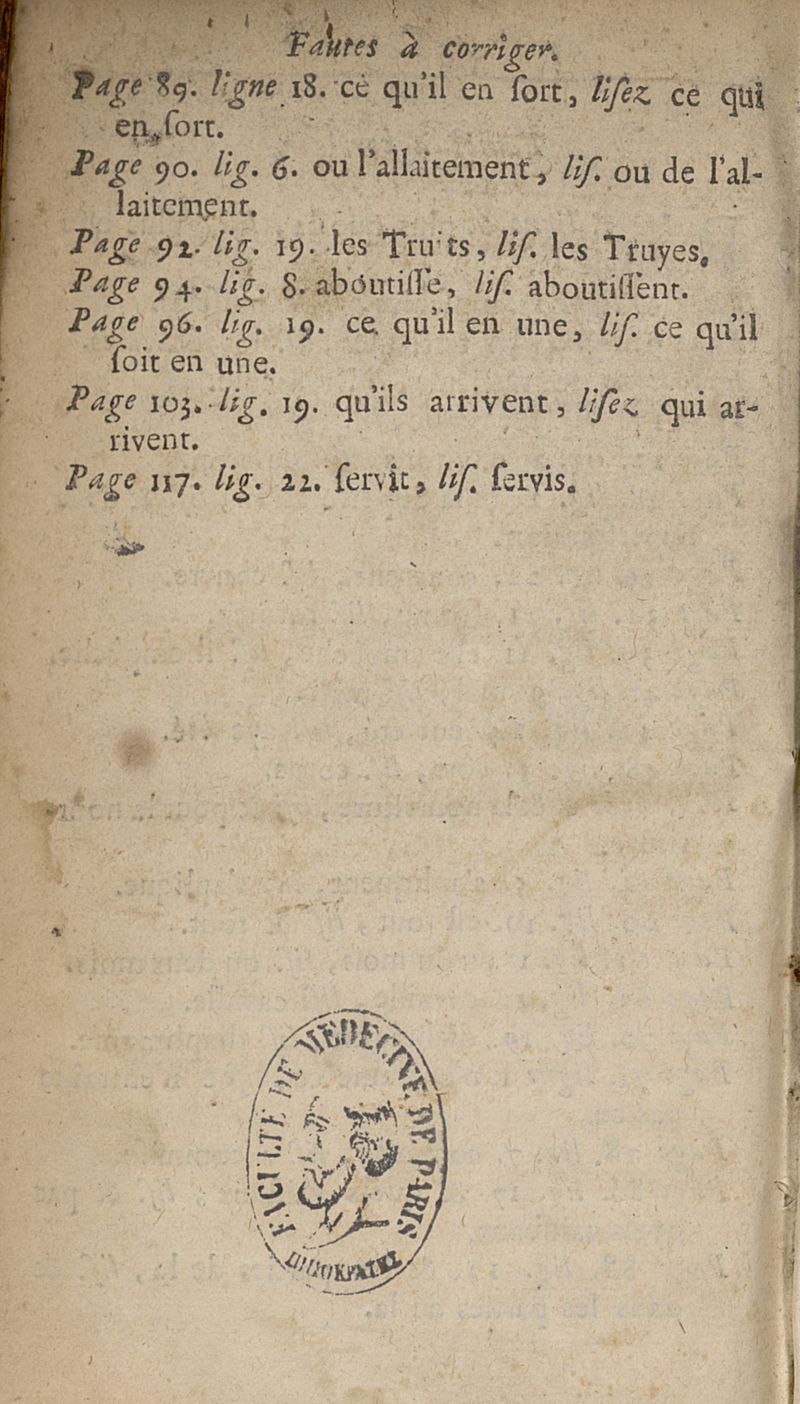 Fautes à corriger.
Page 89. ligne 18. ce qu'il en ſort, liſez ce qui
en ſort.
Page 90. lig. 6. ou l'allaitement, liſ. ou de l'al-
laitement.
Page 92. lig. 19. les Truits, liſ. les Truyes.
Page 94. lig. 8. aboutiſſe, liſ. aboutiſſent.
Page 96. lig. 19. ce qu'il en une, liſ. ce qu'il
ſoit en une.
Page 103. lig. 19. qu'ils arrivent, liſez qui ar-
rivent.
Page 117. lig. 22. ſervit, liſ. ſervis.
FACULTÉ DE MÉDECINE DE PARIS